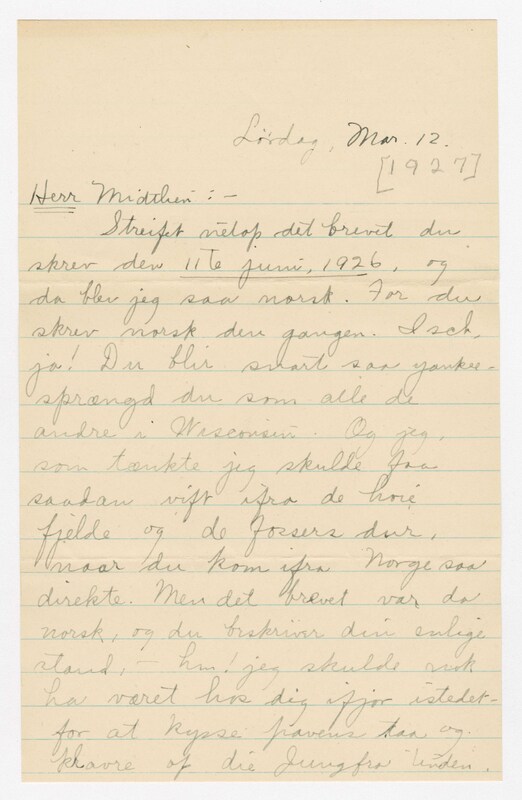 Lørdag, Mar. 12.
[1927]
Herr Midtlien:-
Streifet netop det brevet du
skrev den 11te juni, 1926, og
da blev jeg saa norsk. For du
skrev norsk den gangen. Isch,
ja! Du blir snart saa yankee-
sprængd du som alle de
andre i Wisconsin. Og jeg,
som tænkte jeg skulde faa
saadan vift ifra de høie
fjelde og de fossers dur,
naar du kom ifra Norge saa
direkte. Men det brevet var da
norsk, og du beskriver din enlige
stand, — hm! jeg skulde nok
ha været hos dig ifjor istedet-
for at kysse pavens taa og
klavre of die Jungfra